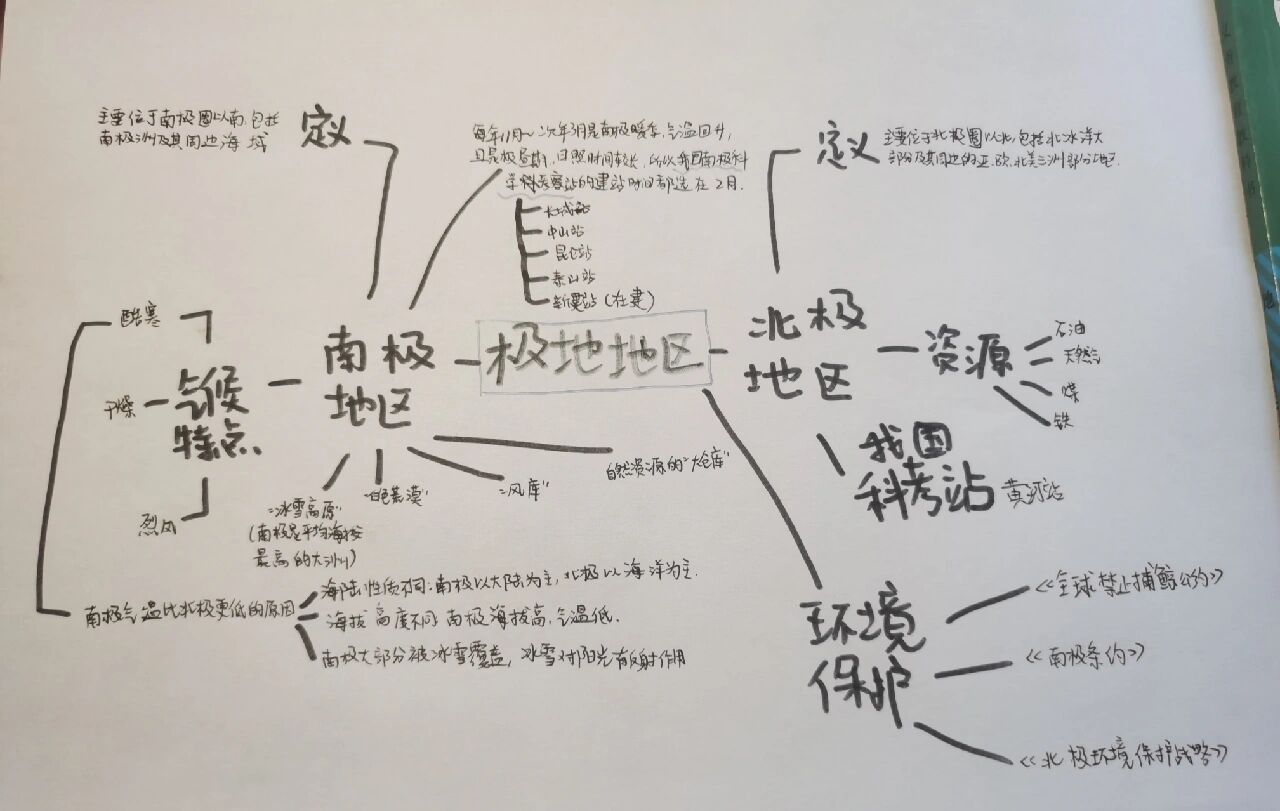 主要位于南极圈以南,包括
南极洲及其周边海域
定义
每年11月~次年3月是南极暖季,气温回升,
且是极昼期,日照时间较长,所以我国南极科
学科考察站的建站时间都选在2月.
长城站
中山站
昆仑站
泰山站
新建站(在建)
定义
主要位于北极圈以北,包括北冰洋大
部分及其周边的亚、欧、北美三洲部分地区.
极地地区
南极
地区
气候
特点
酷寒
干燥
烈风
"冰雪高原"
(南极是平均海拔
最高的大洲)
"白色荒漠"
"风库"
自然资源的"大仓库"
南极气温比北极更低的原因
海陆性质不同:南极以大陆为主,北极以海洋为主.
海拔高度不同 南极海拔高,气温低.
南极大部分被冰雪覆盖,冰雪对阳光有反射作用
北极
地区
资源
石油
天然气
煤
铁
我国
科考站
黄河站
环境
保护
《全球禁止捕鲸公约》
《南极条约》
《北极环境保护战略》